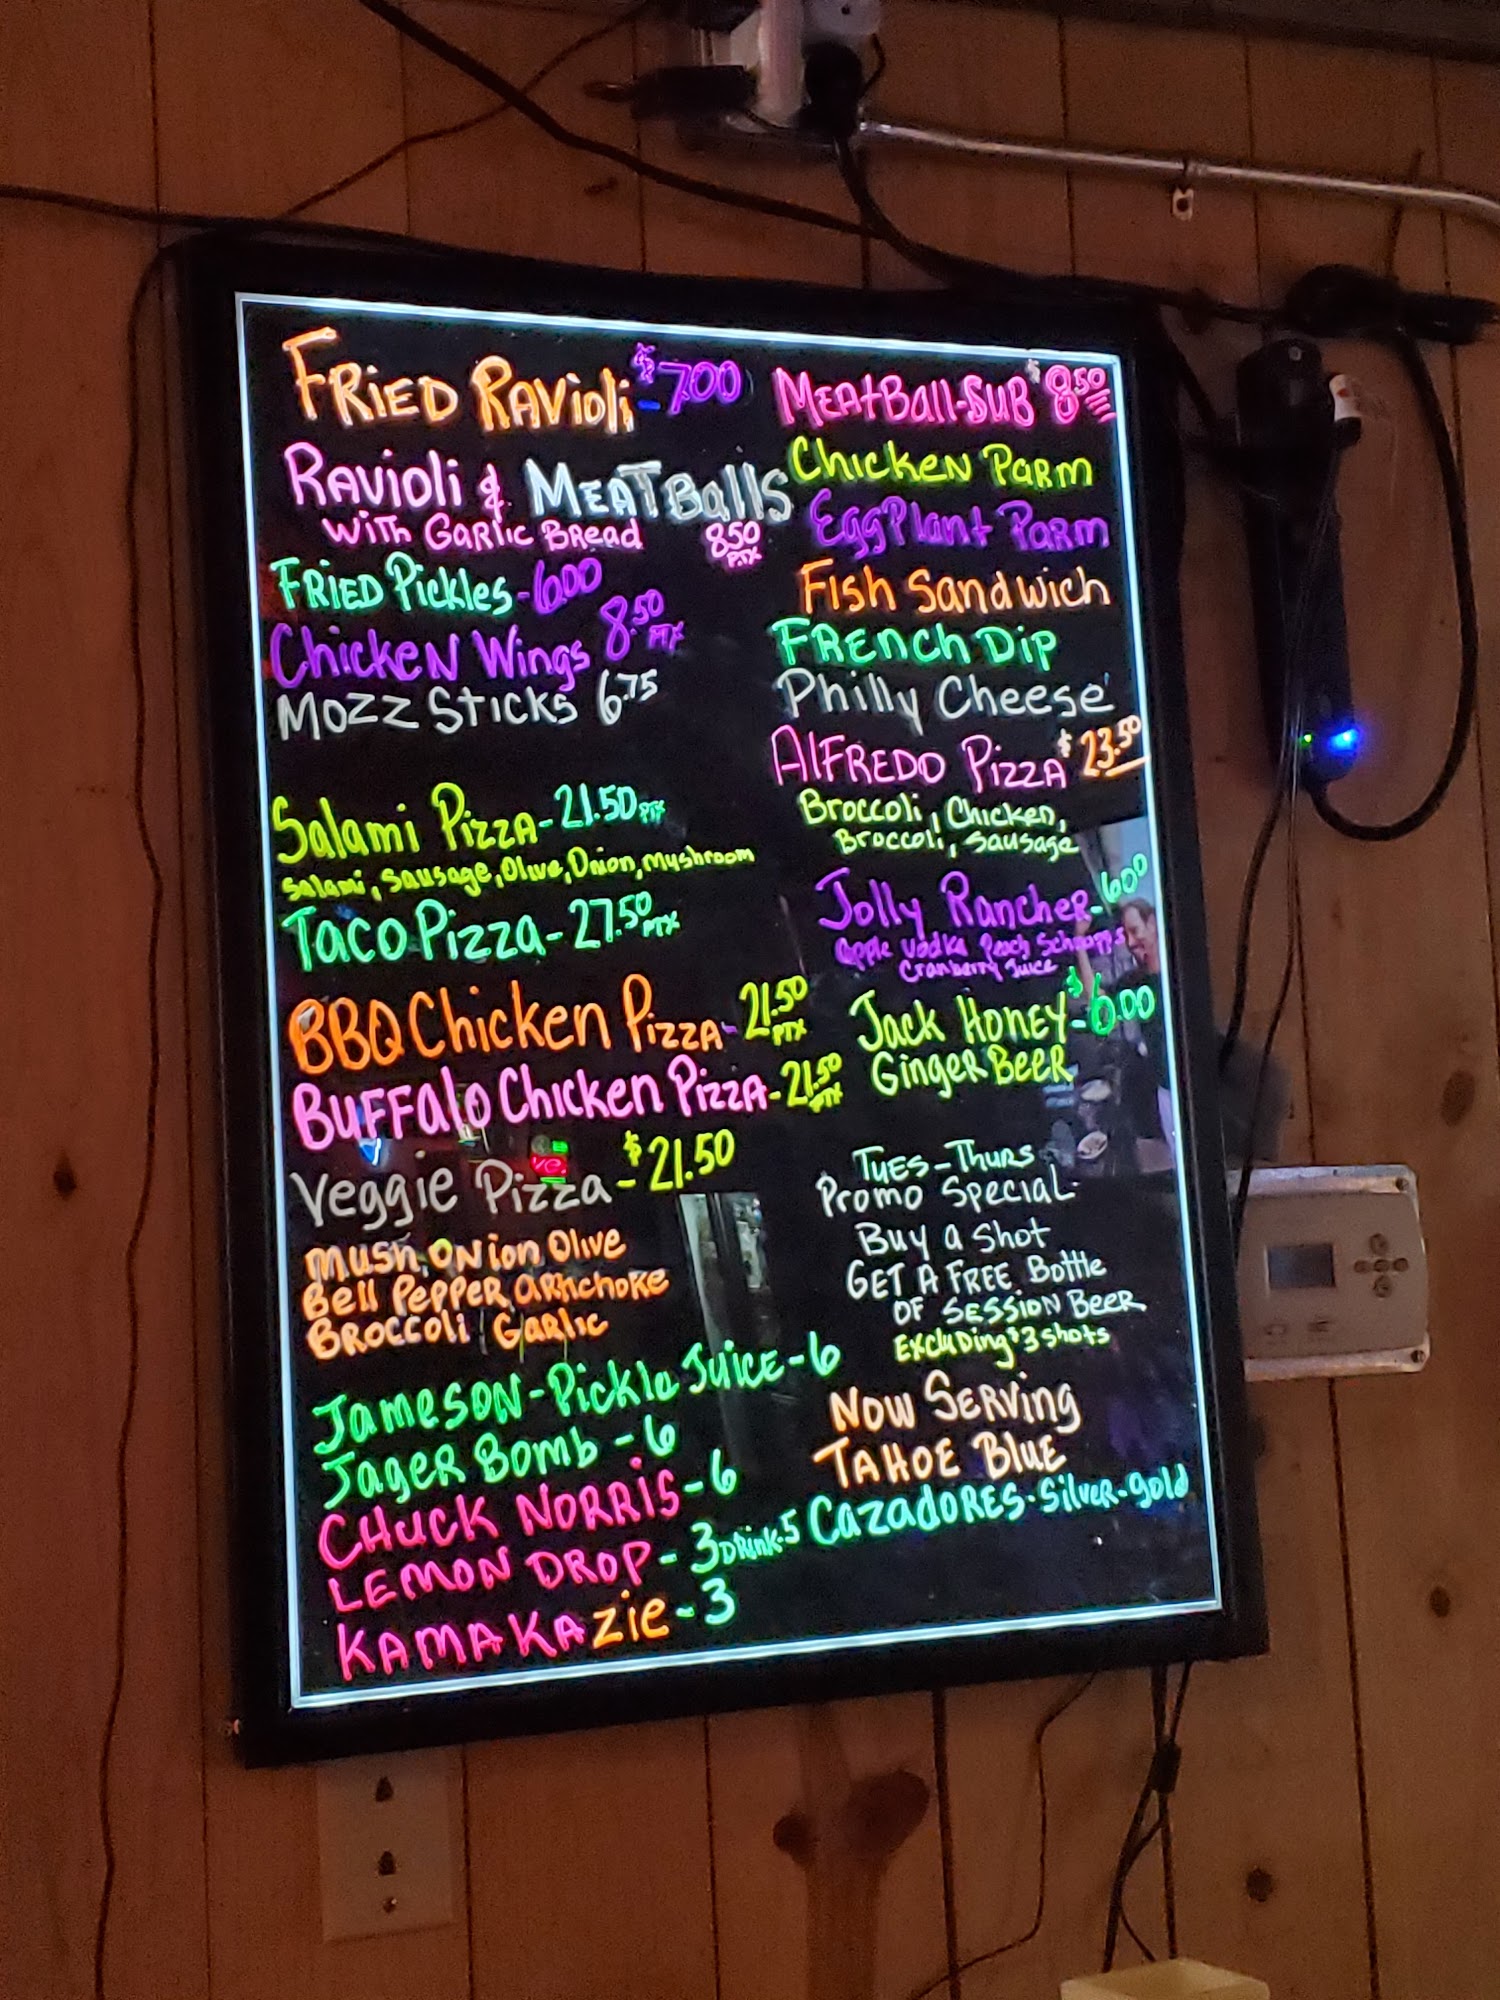 FRiED RAVioli - $7.00
RAVioli & MEATBAllS
WiTH GARlic BREAD 8.50 PTX
FRiED Pickles - 6.00
ChickEN Wings 8.50 PTX
MOZZ STicKS 6.75
Salami PizzA - 21.50 PTX
Salami, Sausage, Olive, Onion, Mushroom
TACO Pizza - 27.50 PTX
BBQ Chicken PizzA - 21.50 PTX
BUFFAlo Chicken PizzA - 21.50 PTX
Veggie Pizza - $21.50
MUSH, ONion Olive
BEll PEPPER, ARTichoke
BROCCOLi, GARlic
JAMESON - Pickle JUiCE - 6
JAGER BOMB - 6
CHUCK NORRiS - 6
LEMON DROP - 3 DRiNK - 5
KAMAKAZiE - 3
MEAtBAll SUB $8.50
ChickEN PARM
EggPlant PARM
FiSh SandWich
FRENch Dip
Philly Cheese
AlFREDO PizzA $23.50
Broccoli, Chicken,
Broccoli, Sausage
Jolly RancheR - 6.00
Apple Vodka Peach Schnapps
Cranberry Juice
JAck HONEY - $6.00
GingeR BEER
TUES - Thurs
PROMO SPECiAL
Buy a Shot
GET A FREE Bottle
OF SESSiON BeeR
Excluding $3 shots
NOW SERVing
TAHOE Blue
CAZADORES - Silver - gold